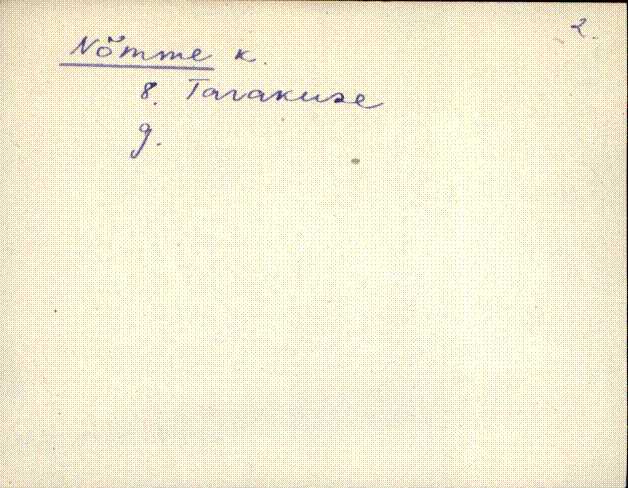 2.
Nõmme k.
8. Tarakuse
9.